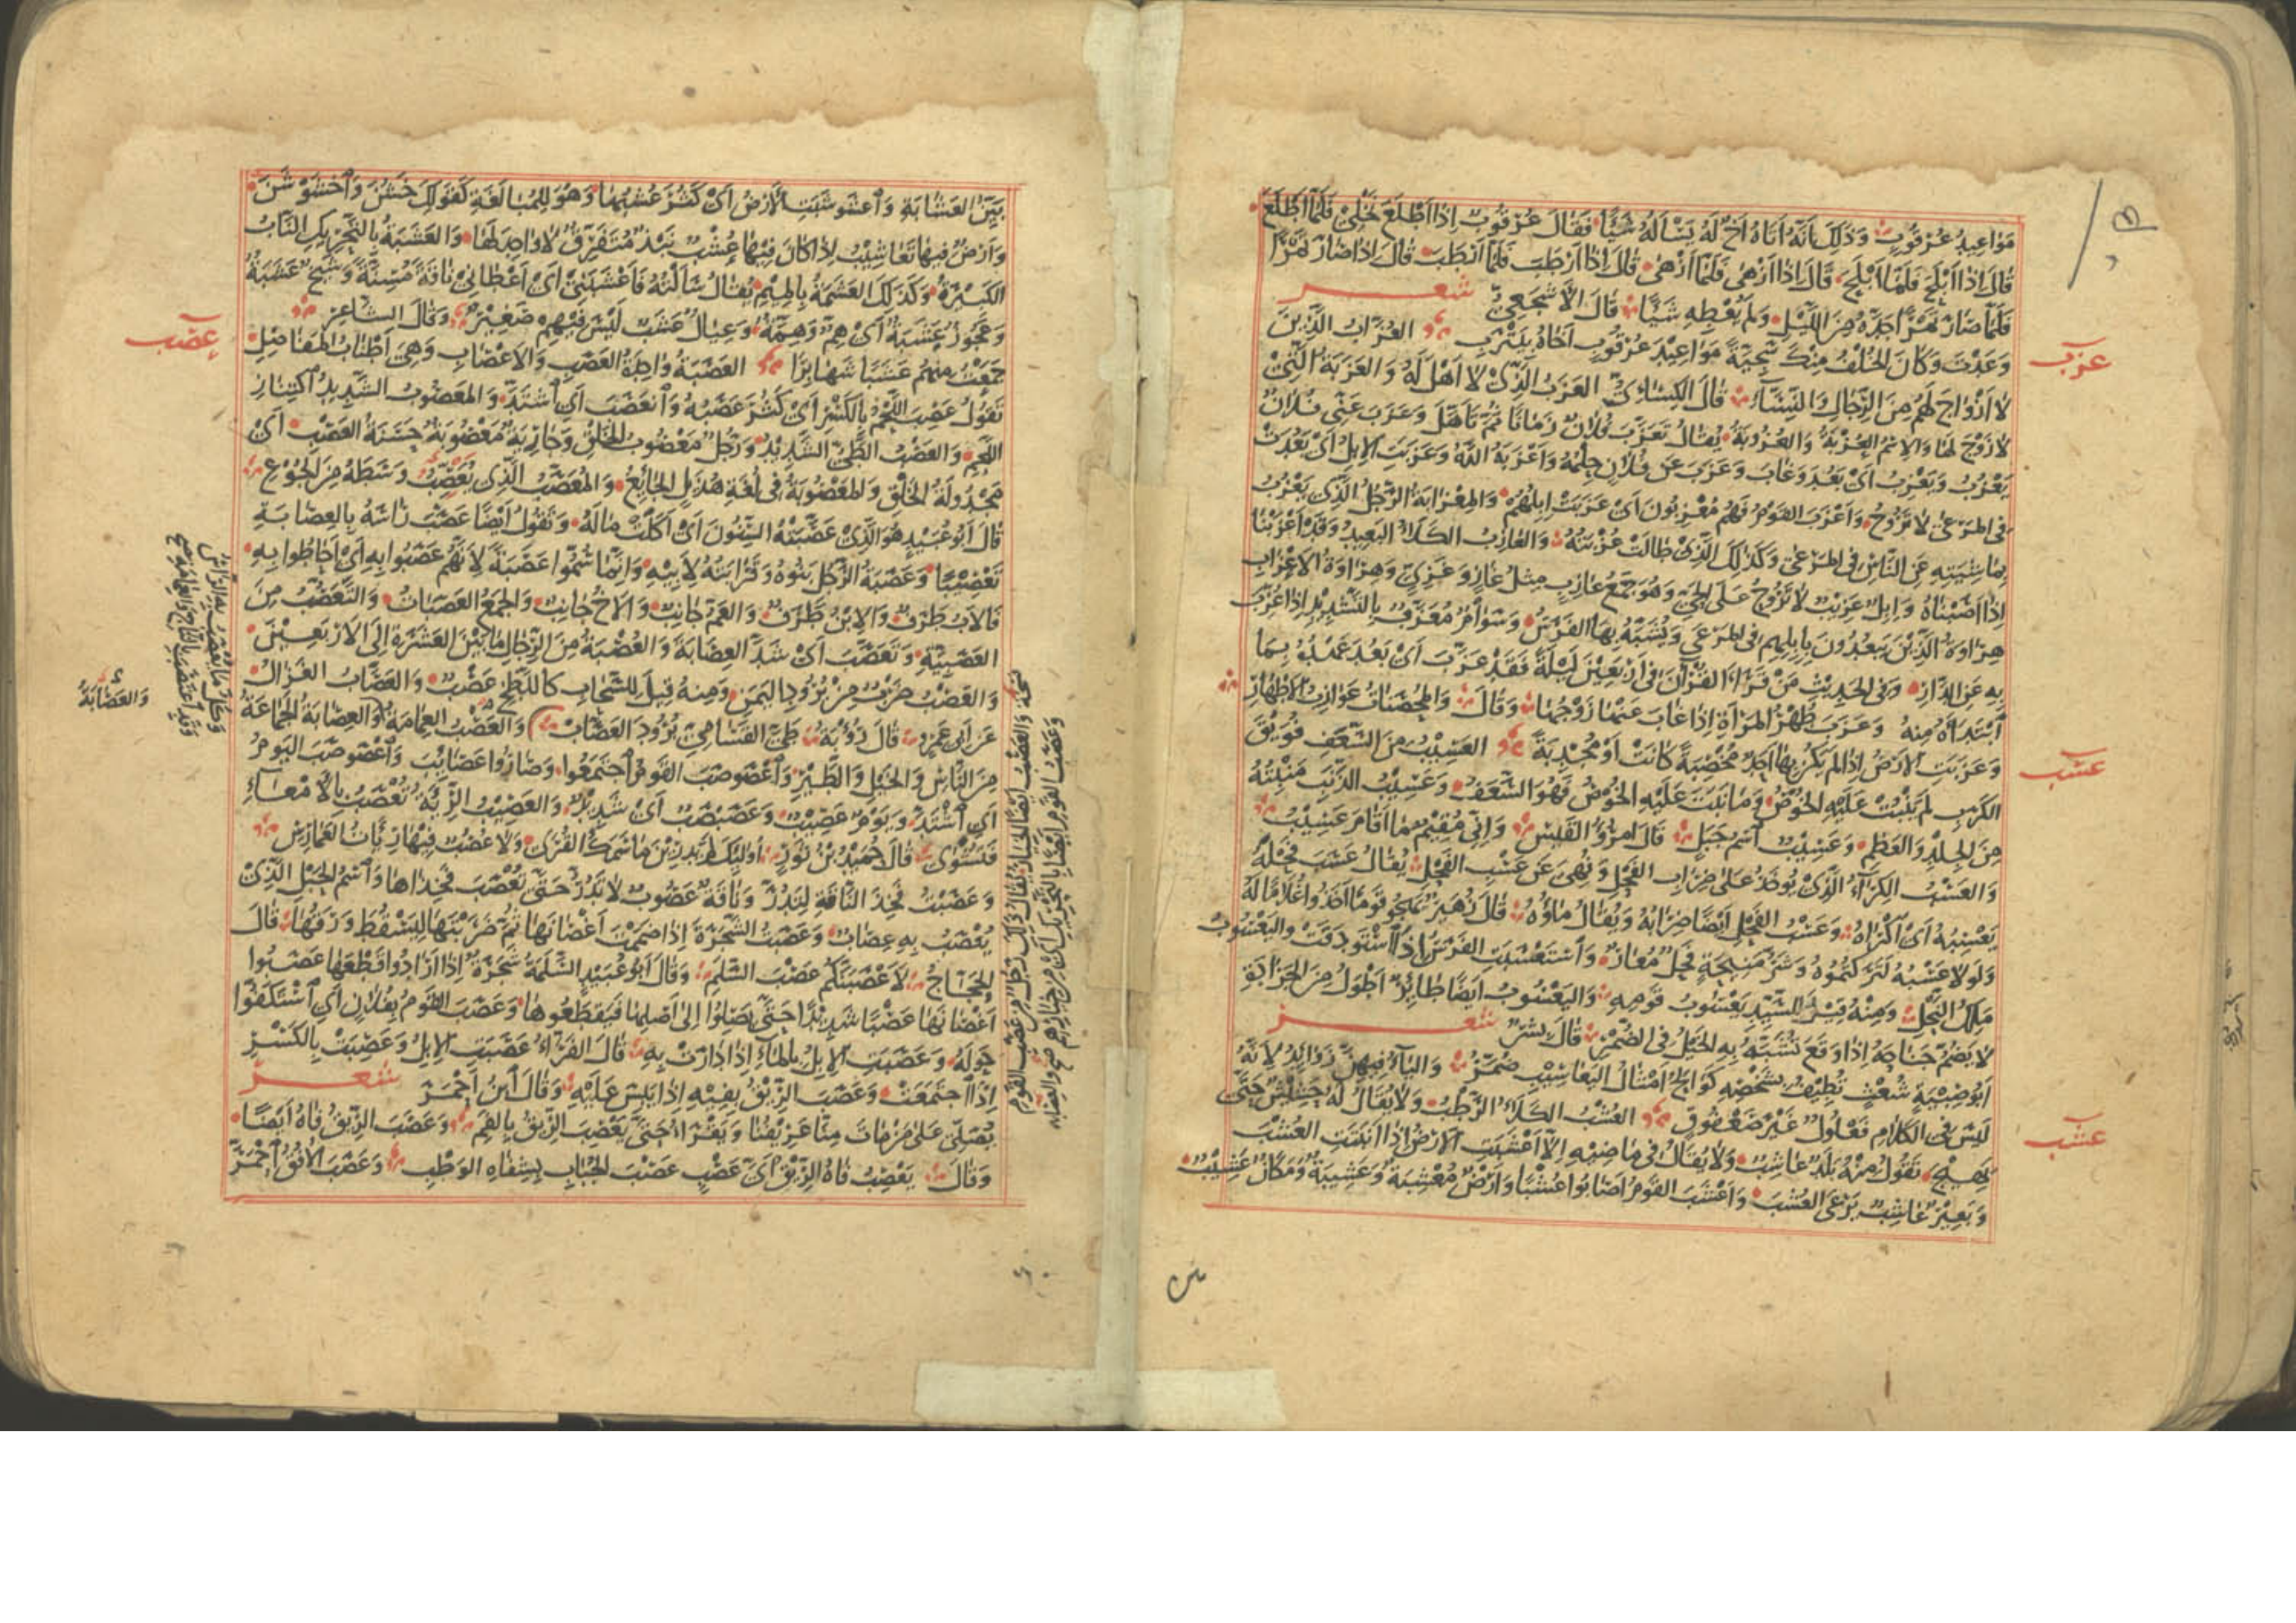 مواعيد عرقوب وذلك انه اتاه اخ له يسأله شيئا فقال عرقوب اذا اطلع نخلي فلما اطلع
قال اذا ابلح فلما ابلح قال اذا ازهى فلما ازهى قال اذا ارطب فلما ارطب قال اذا صار تمرا
فلما صار تمرا جده من الليل ولم يعطه شيئا قال الاشجعي شعر
وعدت وكان الخلف منك سجية مواعيد عرقوب اخاه بيترب العزاب الذين
عزب
لا ازواج لهم من الرجال والنساء قال الكسائي العزب الذي لا اهل له والعزبة التي
لا زوج لها والاسم العزبة والعزوبة يقال تعزب فلان زمانا ثم تاهل وعزب عني فلان
يعزب ويعزب اى بعد وغاب وعزب عن فلان حلمه واعزبه الله وعزبت الابل اى بعدت
فى المرعى لا تروح واعزب القوم فهم معزبون اى عزبت ابلهم والمعزابة الرجل الذى يعزب
بماشيته عن الناس فى المرعى وكذلك الذى طالت عزبته والعازب الكلأ البعيد وقد اعزبنا
اذا اصبناه وابل عزيب لا تروح على الحي وهو جمع عازب مثل غاز وغزي وهراوة الاعزاب
هراوة الذين يبعدون بابلهم فى المرعى ويشبه بها الفرس وسوام معزب بالتشديد اذا عزب
به عن الدار وفى الحديث من قرأ القرآن فى اربعين ليلة فقد عزب اى بعد عهده بما
ابتدأه منه وعزب طهر المرأة اذا غاب عنها زوجها وقال والمحصنات عوازب الاطهار
وعزبت الارض اذا لم يكن بها احد مخصبة كانت او مجدبة العسيب من السعف فويق
عسب
الكرب لم ينبت عليه الخوص وما نبت عليه الخوص فهو السعف وعسيب الذنب منبته
من الجلد والعظم وعسيب اسم جبل قال امرؤ القيس وانى مقيم ما اقام عسيب
والعسب الكراء الذى يوخذ على ضراب الفحل ونهى عن عسب الفحل يقال عسب فحله
يعسبه اى اكراه وعسب الفحل ايضا ضرابه ويقال ماؤه قال زهير يهجو قوما اخذوا غلاما له
ولولا عسبه لتركتموه وشر منيحة فحل معار واستعسبت الفرس اذا استودقت واليعسوب
ملك النحل ومنه قيل للسيد يعسوب قومه واليعسوب ايضا طائر اطول من الجرادة
لا يضم جناحه اذا وقع تشبه به الخيل فى الضمر قال بشر شعر
ابو صبية شعث تطيف بشخصه كوالح امثال اليعاسيب ضمر والياء فيهن زوائد لانه
ليس فى الكلام فعلول غير صعفوق العشب الكلأ الرطب ولا يقال له حشيش حتى
عشب
يهيج تقول منه بلد عاشب ولا يقال فى ماضيه الا اعشبت الارض اذا انبتت العشب
وبعير عاشب يرعى العشب واعشب القوم اصابوا عشبا وارض معشبة وعشيبة ومكان عشيب
بين العشابة واعشوشبت الارض اى كثر عشبها وهو للمبالغة كقولك خشن واخشوشن
وارض فيها تعاشيب اذا كان فيها عشب نبذ متفرق لا واحد لها والعشبة بالتحريك الناب
الكبيرة وكذلك العشمة بالميم يقال سألته فاعشبنى اى اعطانى ناقة مسنة وشيخ عشبة
وعجوز عشبة اى هم وهمة وعيال عشب ليس فيهم صغير وقال الشاعر
جمعت منهم عشبا شهابرا العصبة واحدة العصب والاعصاب وهى اطناب المفاصل
عصب
تقول عصب اللحم بالكسر اى كثر عصبه وانعصب اى اشتد والمعصوب الشديد اكتناز
اللحم والعصب الطى الشديد ورجل معصوب الخلق وجارية معصوبة حسنة العصب اى
مجدولة الخلق والمعصوبة فى لغة هذيل الجائع والمعصب الذى يعصب وسطه من الجوع
قال ابو عبيد هو الذى عصبته السنون اى اكلت ماله وتقول ايضا عصب راسه بالعصابة
تعصيبا وعصبة الرجل بنوه وقرابته لابيه وانما سموا عصبة لانهم عصبوا به اى احاطوا به
فالاب طرف والابن طرف والعم جانب والاخ جانب والجمع العصبات والتعصب من
العصبية وتعصب اى شد العصابة والعصبة من الرجال ما بين العشرة الى الاربعين
والعصب ضرب من برود اليمن ومنه قيل للسحاب كاللطخ عصب والعصاب الغزال
عن ابى عمرو قال رؤبة طى القسامى برود العصاب والعصب العمامة والعصابة الجماعة
والعصابة
من الناس والخيل والطير واعصوصب القوم اجتمعوا وصاروا عصائب واعصوصب اليوم
اى اشتد ويوم عصيب وعصبصب اى شديد والعصيب الرئة تعصب بالامعاء
فتشوى قال حميد بن ثور اولئك لم يدرين ما سمك القرى ولا عصب فيها رئات العمارس
وعصبت فخذ الناقة لتدر وناقة عصوب لا تدر حتى تعصب فخذاها واسم الحبل الذى
يعصب به عصاب وعصبت الشجرة اذا ضممت اغصانها ثم ضربتها ليسقط ورقها قال
الحجاج لاعصبنكم عصب السلم وقال ابو عبيد السلمة شجرة اذا ارادوا قطعها عصبوا
اغصانها عصبا شديدا حتى يصلوا الى اصلها فيقطعوها وعصب القوم بفلان اى استكفوا
حوله وعصبت الابل بالماء اذا دارت به قال الفراء عصبت الابل وعصبت بالكسر
اذا اجتمعت وعصب الريق بفيه اذا يبس عليه وقال ابن احمر شعر
يصلى على من مات منا عريفنا ويقرأ حتى يعصب الريق بالفم وعصب الريق فاه ايضا
وقال يعصب فاه الريق اى عصب عصب الجباب بشفاه الوطب وعصب الافق احمر